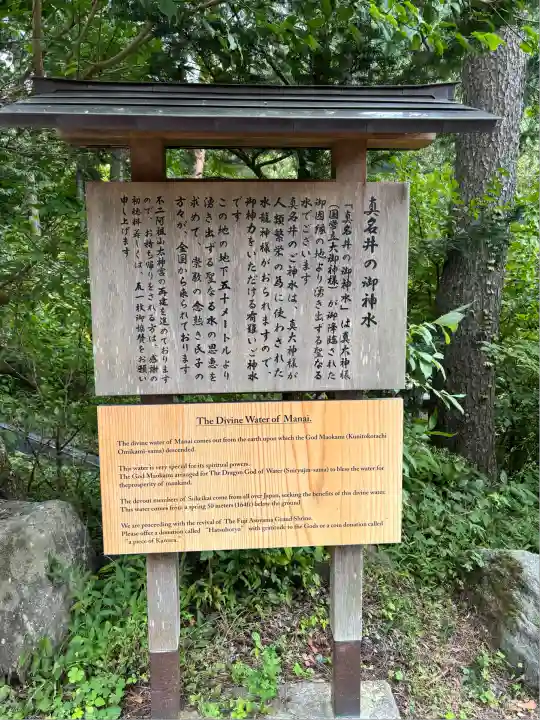 真名井の御神水
「真名井の御神水」は真大神様
（国常立大御神様）が御降臨された
御因縁の地より湧き出ずる聖なる
水でございます
真名井のご神水は、真大神様が
人類繁栄の為に使わされた
水龍神様がおられますので、
御神力をいただける有難いご神水
です
この地の地下五十メートルより
湧き出ずる聖なる水の恩恵を
求めて、崇敬の念熱き氏子の
方々が、全国から来られております
不二阿祖山太神宮の再建を進めております
ので、お持ち帰りをされる方は、感謝の
初穂料若しくは、瓦一枚御協賛をお願い
申し上げます
The Divine Water of Manai.
The divine water of Manai comes out from the earth upon which the God Maokami (Kunitokotachi
Oomikami-sama) descended.
This water is very special for its spiritual powers.
The God Maokami arranged for The Dragon God of Water (Suiryujin-sama) to bless the water for
theprosperity of mankind.
The devout members of Seikeikai come from all over Japan, seeking the benefits of this divine water.
This water comes from a spring 50 meters (164ft) below the ground
We are proceeding with the revival of The Fuji Asoyama Grand Shrine.
Please offer a donation called "Hatsuhoryo" with gratitude to the Gods or a coin donation called
"a piece of Kawara."